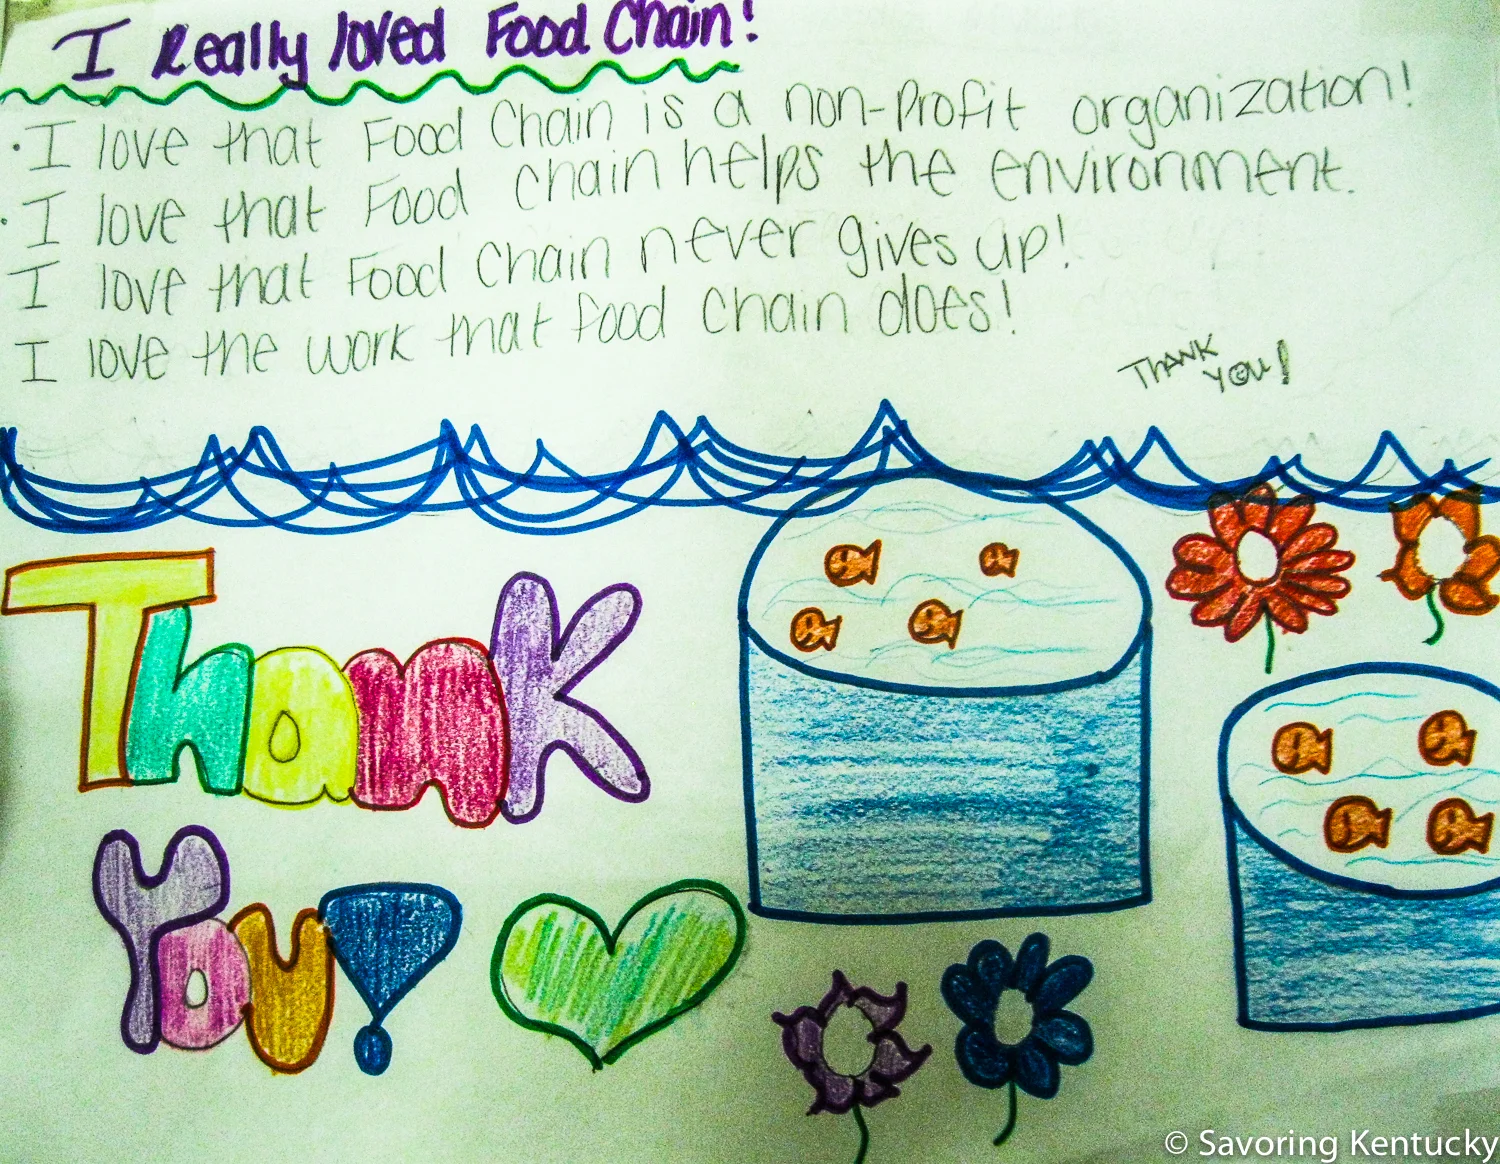 I Really loved Food Chain!
· I love that Food Chain is a non-profit organization!
· I love that Food Chain helps the environment.
I love that Food Chain never gives up!
I love the work that food Chain does!
THANK
YOU!
Thank
You!
© Savoring Kentucky